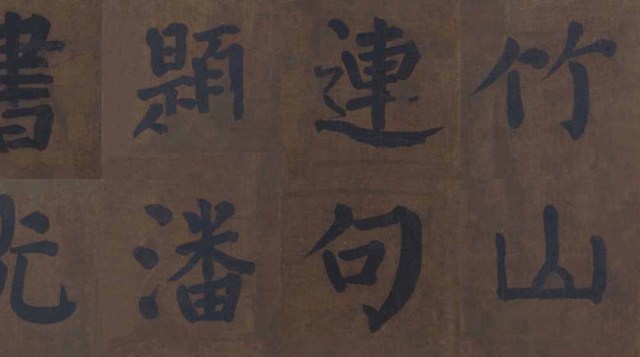 竹山
連句
題潘
書光